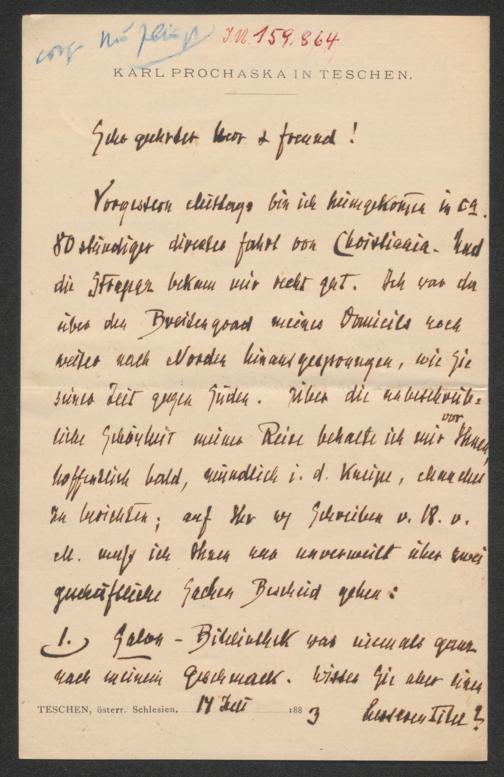 I.N. 159.864
KARL PROCHASKA IN TESCHEN.
Sehr geehrter Herr & Freund!
Vorgestern Mittags bin ich heimgekommen in ca.
80 stündiger directer Fahrt von Christiania. Und
die Strapaz bekam mir recht gut. Ich war da
über den Breitengrad meines Domicils noch
weiter nach Norden hinausgesprungen, wie Sie
seiner Zeit gegen Süden. Über die unbeschreib-
liche Schönheit meiner Reise behalte ich mir vor Ihnen,
hoffentlich bald, mündlich i. d. Kneipe, Manches
zu berichten; auf Ihr Schreiben v. 18. v.
M. muß ich Ihnen nun unverweilt über zwei
geschäftliche Sachen Bescheid geben:
1.) Salon-Bibliothek war niemals ganz
nach meinem Geschmack. Wissen Sie aber einen
besseren Titel?
TESCHEN, österr. Schlesien, 14 1883